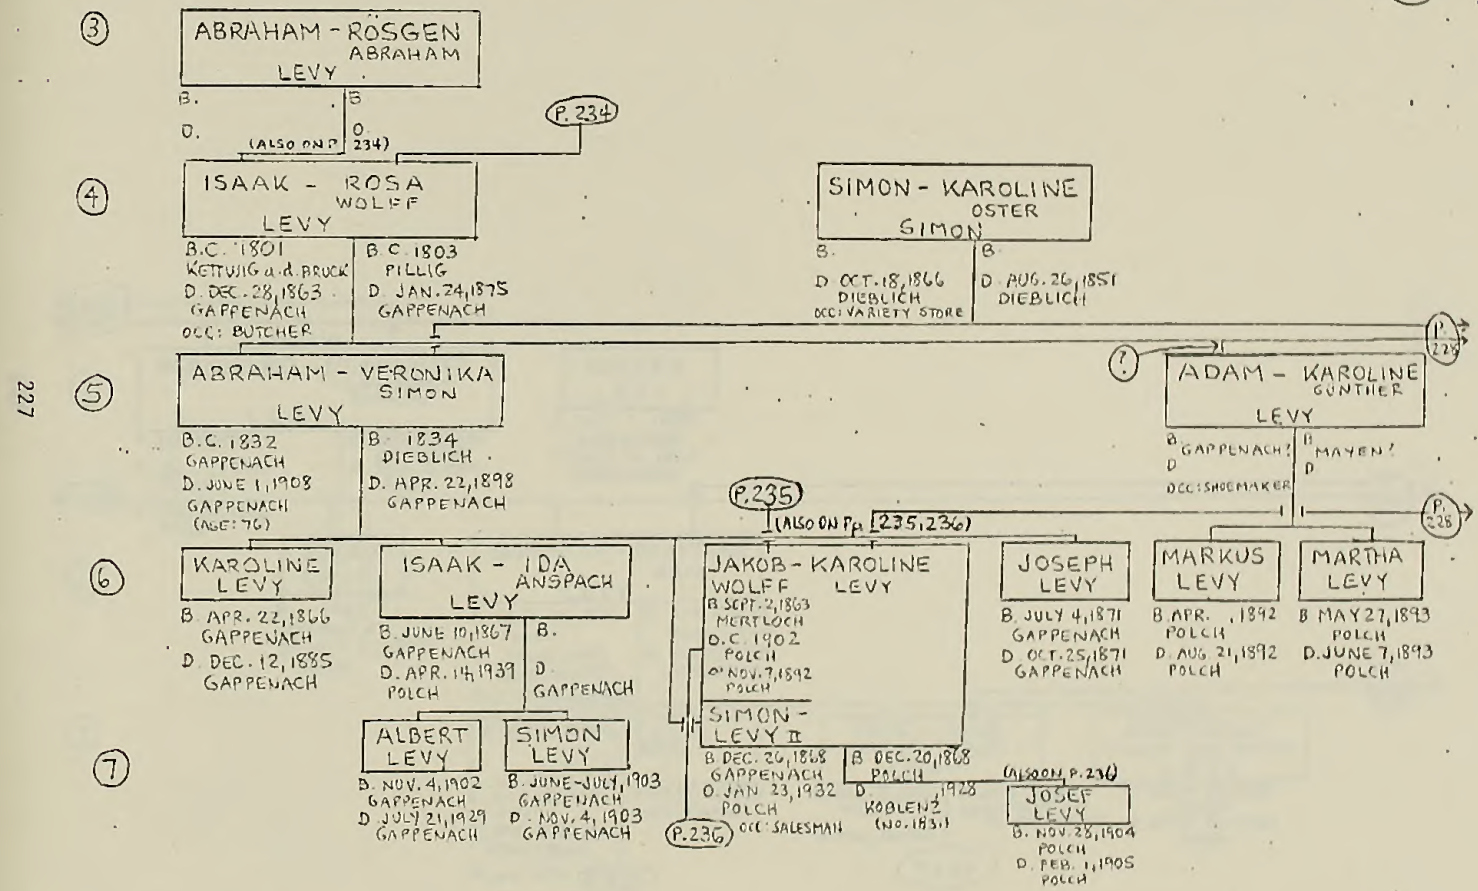 3
ABRAHAM - RÖSGEN
ABRAHAM
LEVY
B. B
D. D.
(ALSO ON P. 234)
P. 234
4
ISAAK - ROSA
WOLFF
LEVY
B.C. 1801
KETTWIG a.d. BRUCK
D. DEC. 28, 1863
GAPPENACH
OCC: BUTCHER
B.C. 1803
PILLIG
D. JAN. 24, 1875
GAPPENACH
SIMON - KAROLINE
OSTER
SIMON
B.
D OCT. 18, 1866
DIEBLICH
OCC: VARIETY STORE
B.
D. AUG. 26, 1851
DIEBLICH
P. 228
227
5
ABRAHAM - VERONIKA
SIMON
LEVY
B.C. 1832
GAPPENACH
D. JUNE 1, 1908
GAPPENACH
(AGE: 76)
B. 1834
DIEBLICH.
D. APR. 22, 1898
GAPPENACH
?
ADAM - KAROLINE
GÜNTHER
LEVY
B GAPPENACH?
D
OCC: SHOEMAKER
B MAYEN?
D
P. 228
P. 235
(ALSO ON Pp 235, 236)
6
KAROLINE
LEVY
B. APR. 22, 1866
GAPPENACH
D. DEC. 12, 1885
GAPPENACH
ISAAK - IDA
ANSPACH
LEVY
B. JUNE 10, 1867
GAPPENACH
D. APR. 14, 1939
POLCH
B.
D.
GAPPENACH
JAKOB - KAROLINE
WOLFF LEVY
B SEPT. 2, 1863
MERTLOCH
D.C. 1902
POLCH
NOV. 7, 1892
POLCH
SIMON -
LEVY II
B DEC. 26, 1868
GAPPENACH
D. JAN 23, 1932
POLCH
OCC: SALESMAN
B DEC. 20, 1868
POLCH
D. , 1928
KOBLENZ
(NO. 1831)
JOSEPH
LEVY
B. JULY 4, 1871
GAPPENACH
D. OCT. 25, 1871
GAPPENACH
MARKUS
LEVY
B. APR. , 1892
POLCH
D. AUG. 21, 1892
POLCH
MARTHA
LEVY
B MAY 27, 1893
POLCH
D. JUNE 7, 1893
POLCH
7
ALBERT
LEVY
B. NOV. 4, 1902
GAPPENACH
D. JULY 21, 1929
GAPPENACH
SIMON
LEVY
B. JUNE-JULY, 1903
GAPPENACH
D. NOV. 4, 1903
GAPPENACH
P. 236
(ALSO ON, P. 236)
JOSEF
LEVY
B. NOV. 28, 1904
POLCH
D. FEB. 1, 1905
POLCH